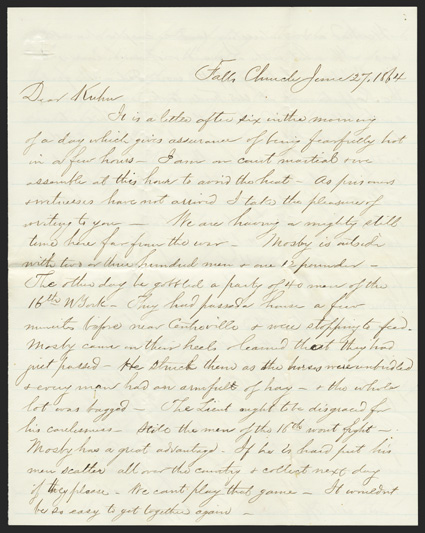 Falls Church June 27, 1864
Dear Kuhn
It is a little after six in the morning
of a day which gives assurance of being fearfully hot
in a few hours - I am on court martial we
assemble at this hour to avoid the heat - As prisoners
& witnesses have not arrived I take the pleasure of
writing to you - We are having a mighty still
time here far from the war - Mosby is outside
with two or three hundred men & one 12 pounder -
The other day he gobbled a party of 40 men of the
16th N York - They had passed a house a few
minutes before near Centreville & were stopping to feed.
Mosby came on their heels learned that they had
just passed - He struck them as the horses were unbridled
& every man had an armfull of hay - & the whole
lot was bagged - The Lieut ought to be disgraced for
his carelessness - Still the men of the 16th wont fight -
Mosby has a great advantage. If he is hard put his
men scatter all over the country & collect next day
if they please - We cant play that game - It wouldnt
be so easy to get together again -